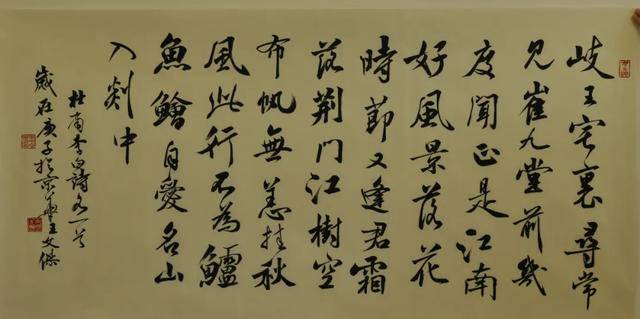 岐王宅裏尋常
見崔九堂前幾
度聞正是江南
好風景落花
時節又逢君霜
落荊門江樹空
布帆無恙挂秋
風此行不為鱸
魚鱠自愛名山
入剡中
杜甫李白詩各一首
歲在庚子於京華王文傑